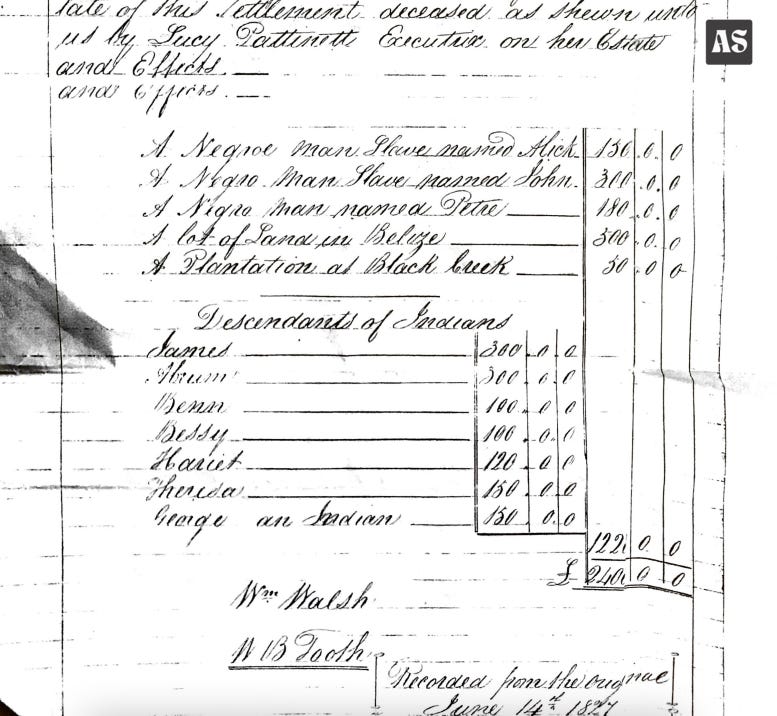 late of this Settlement deceased as shewn unto
us by Lucy Pattinett Executrix on her Estate
and Effects.
and Effects.
AS
A Negroe man Slave named Alick 150. 0. 0
A Negro Man Slave named John. 300. 0. 0
A Negro Man named Petre 180. 0. 0
A lot of Land in Belize 500. 0. 0
A Plantation at Black Creek 50. 0 0
Descendants of Indians
James 300. 0 0
Abrum 300 0. 0
Benn 100. 0 0
Bessy 100. 0. 0
Hariet 120. 0 0
Theresa 150 0 0
George an Indian 150 0. 0
122 0. 0
£ 240 0 0
Wm Walsh
W B Tooth
Recorded from the original
June 14th 1827